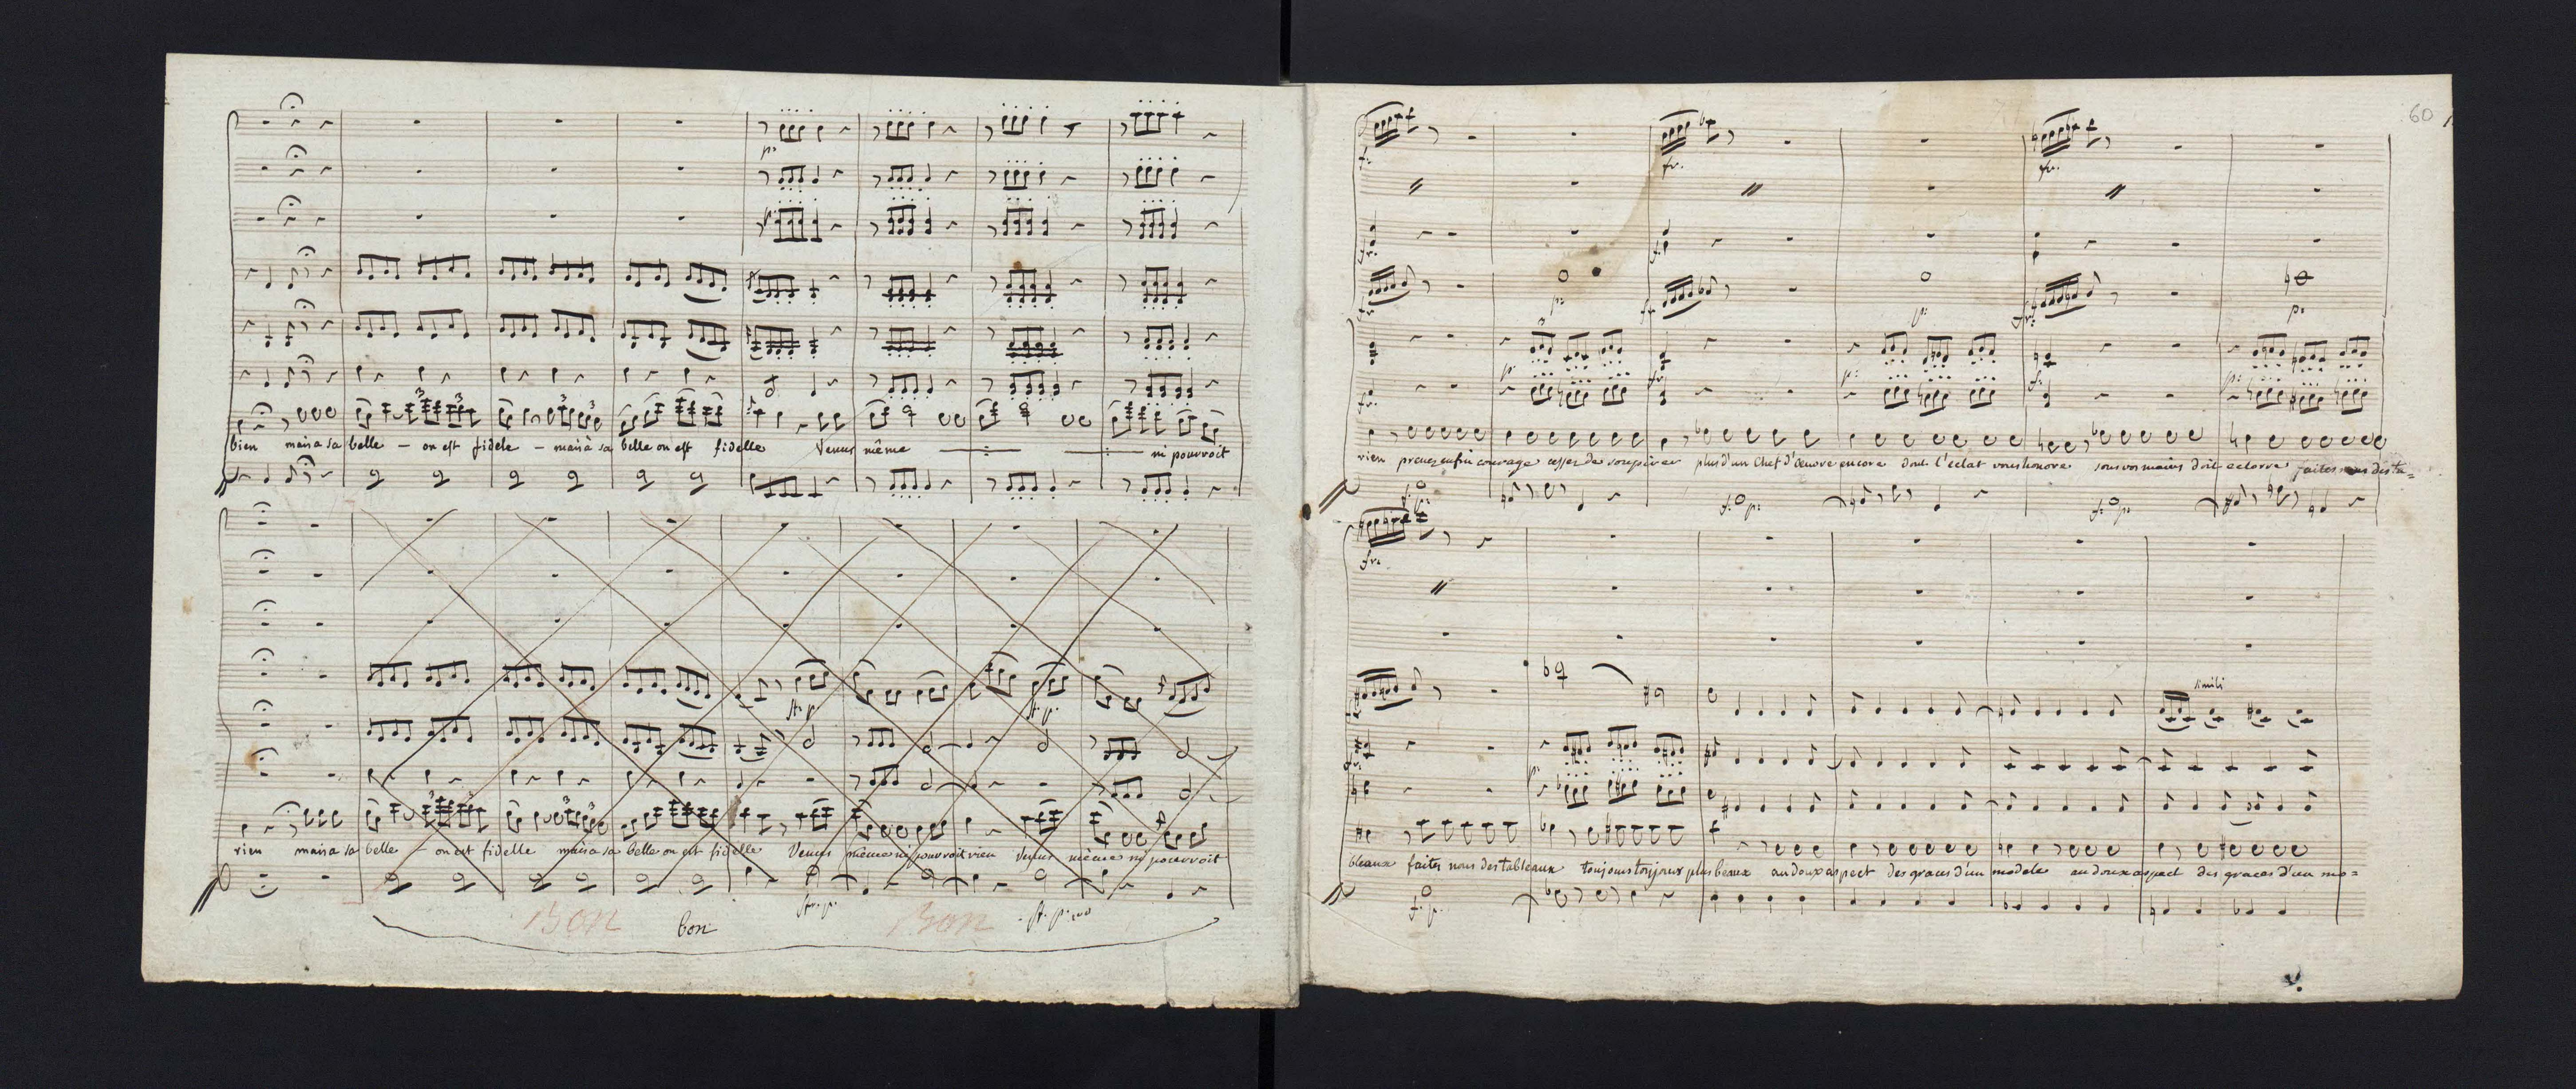 p:
bien mais a sa belle – on est fidele – mais à sa belle on est fidelle Venus même ni pourvoit
rien mais a sa belle – on est fidelle mais a sa belle on est fidelle Venus même ni pourvoit rien Venus même ni pourvoit
Bon bon Bon
60
f: fr. fr.
fr. f:
p: p: p:
rien prenez enfin courage cesser de soupirer plus d'un Chef d'œuvre encore dont l'éclat vous honore sous vos mains doit eclorre faites nous des ta=
f: p: f: p:
fr.
simili
bleaux faites nous des tableaux toujours toujours plus beaux au doux aspect des graces d'un modele au doux aspect des graces d'un mo=
f. p.